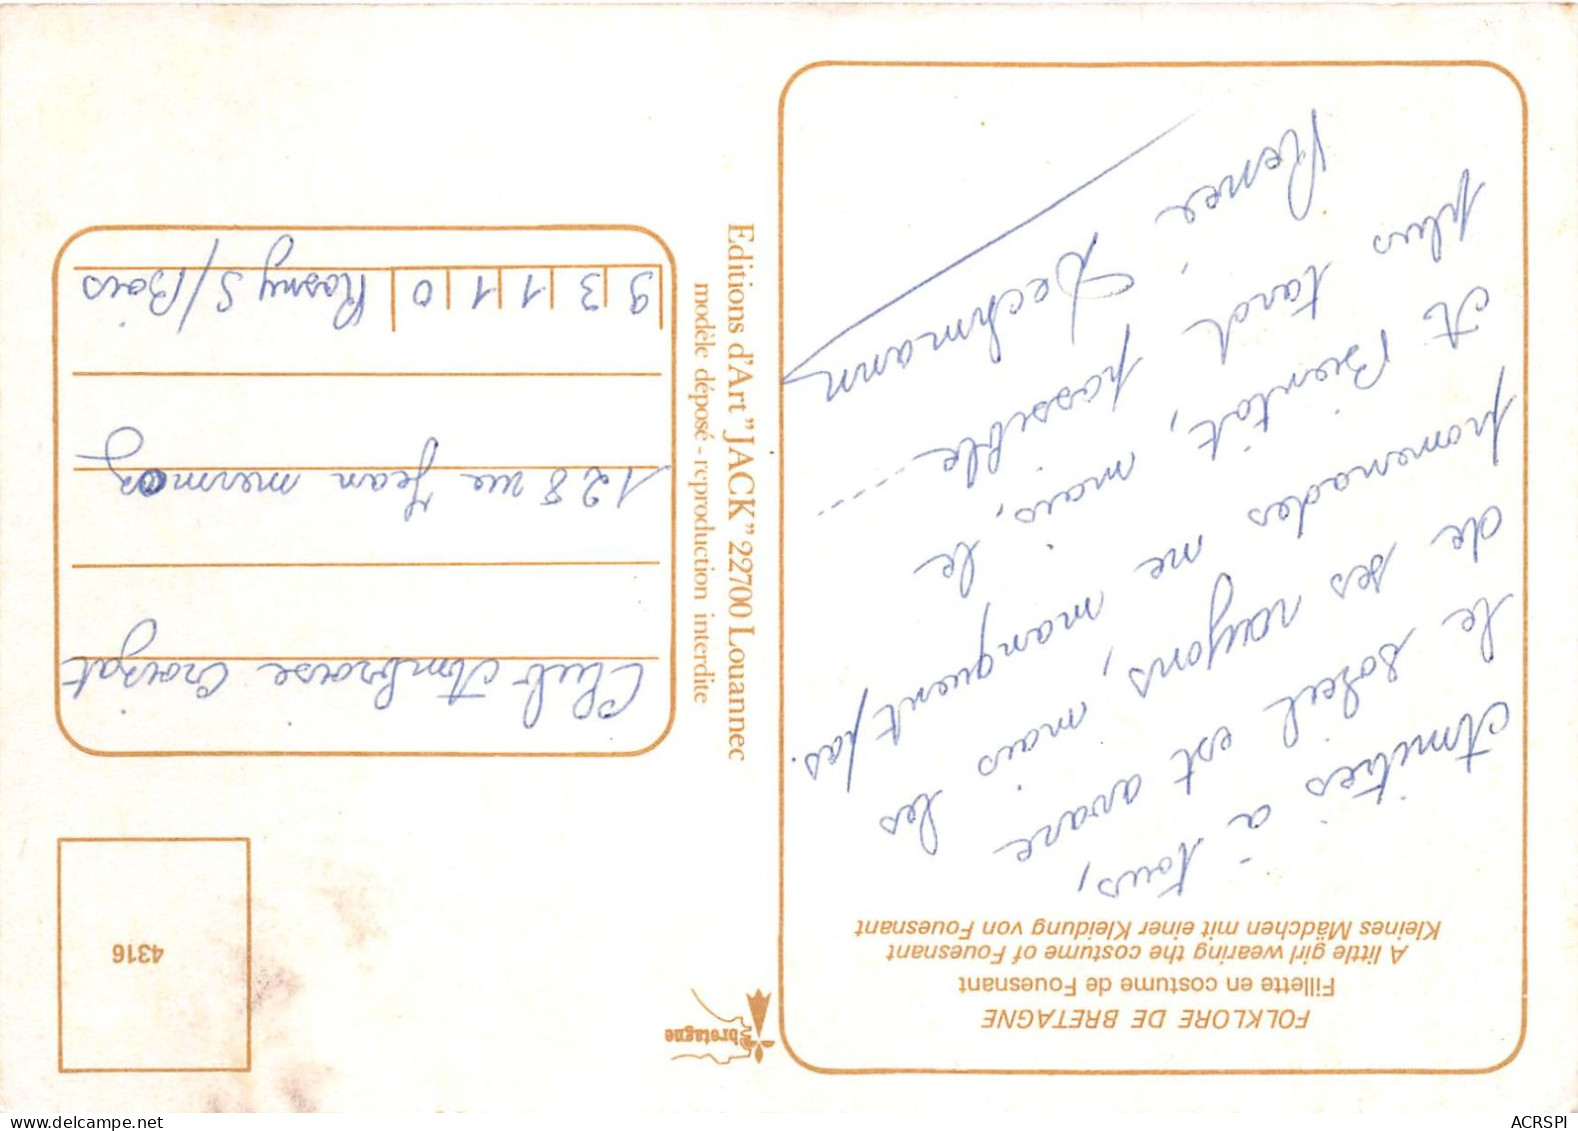 FOLKLORE DE BRETAGNE
Fillette en costume de Fouesnant
A little girl wearing the costume of Fouesnant
Kleines Mädchen mit einer Kleidung von Fouesnant
Amitiés à tous,
le soleil est avare
de ses rayons, mais les
promenades me manquent pas.
A Bientôt, mais, le
plus tard possible----
Renee, Dechmann
bretagne
4316
Editions d'Art "JACK" 22700 Louannec
modèle déposé - reproduction interdite
Club Ambroise Croizat
128 rue Jean mermoz
93110 Rosny S/Bois
ACRSPI